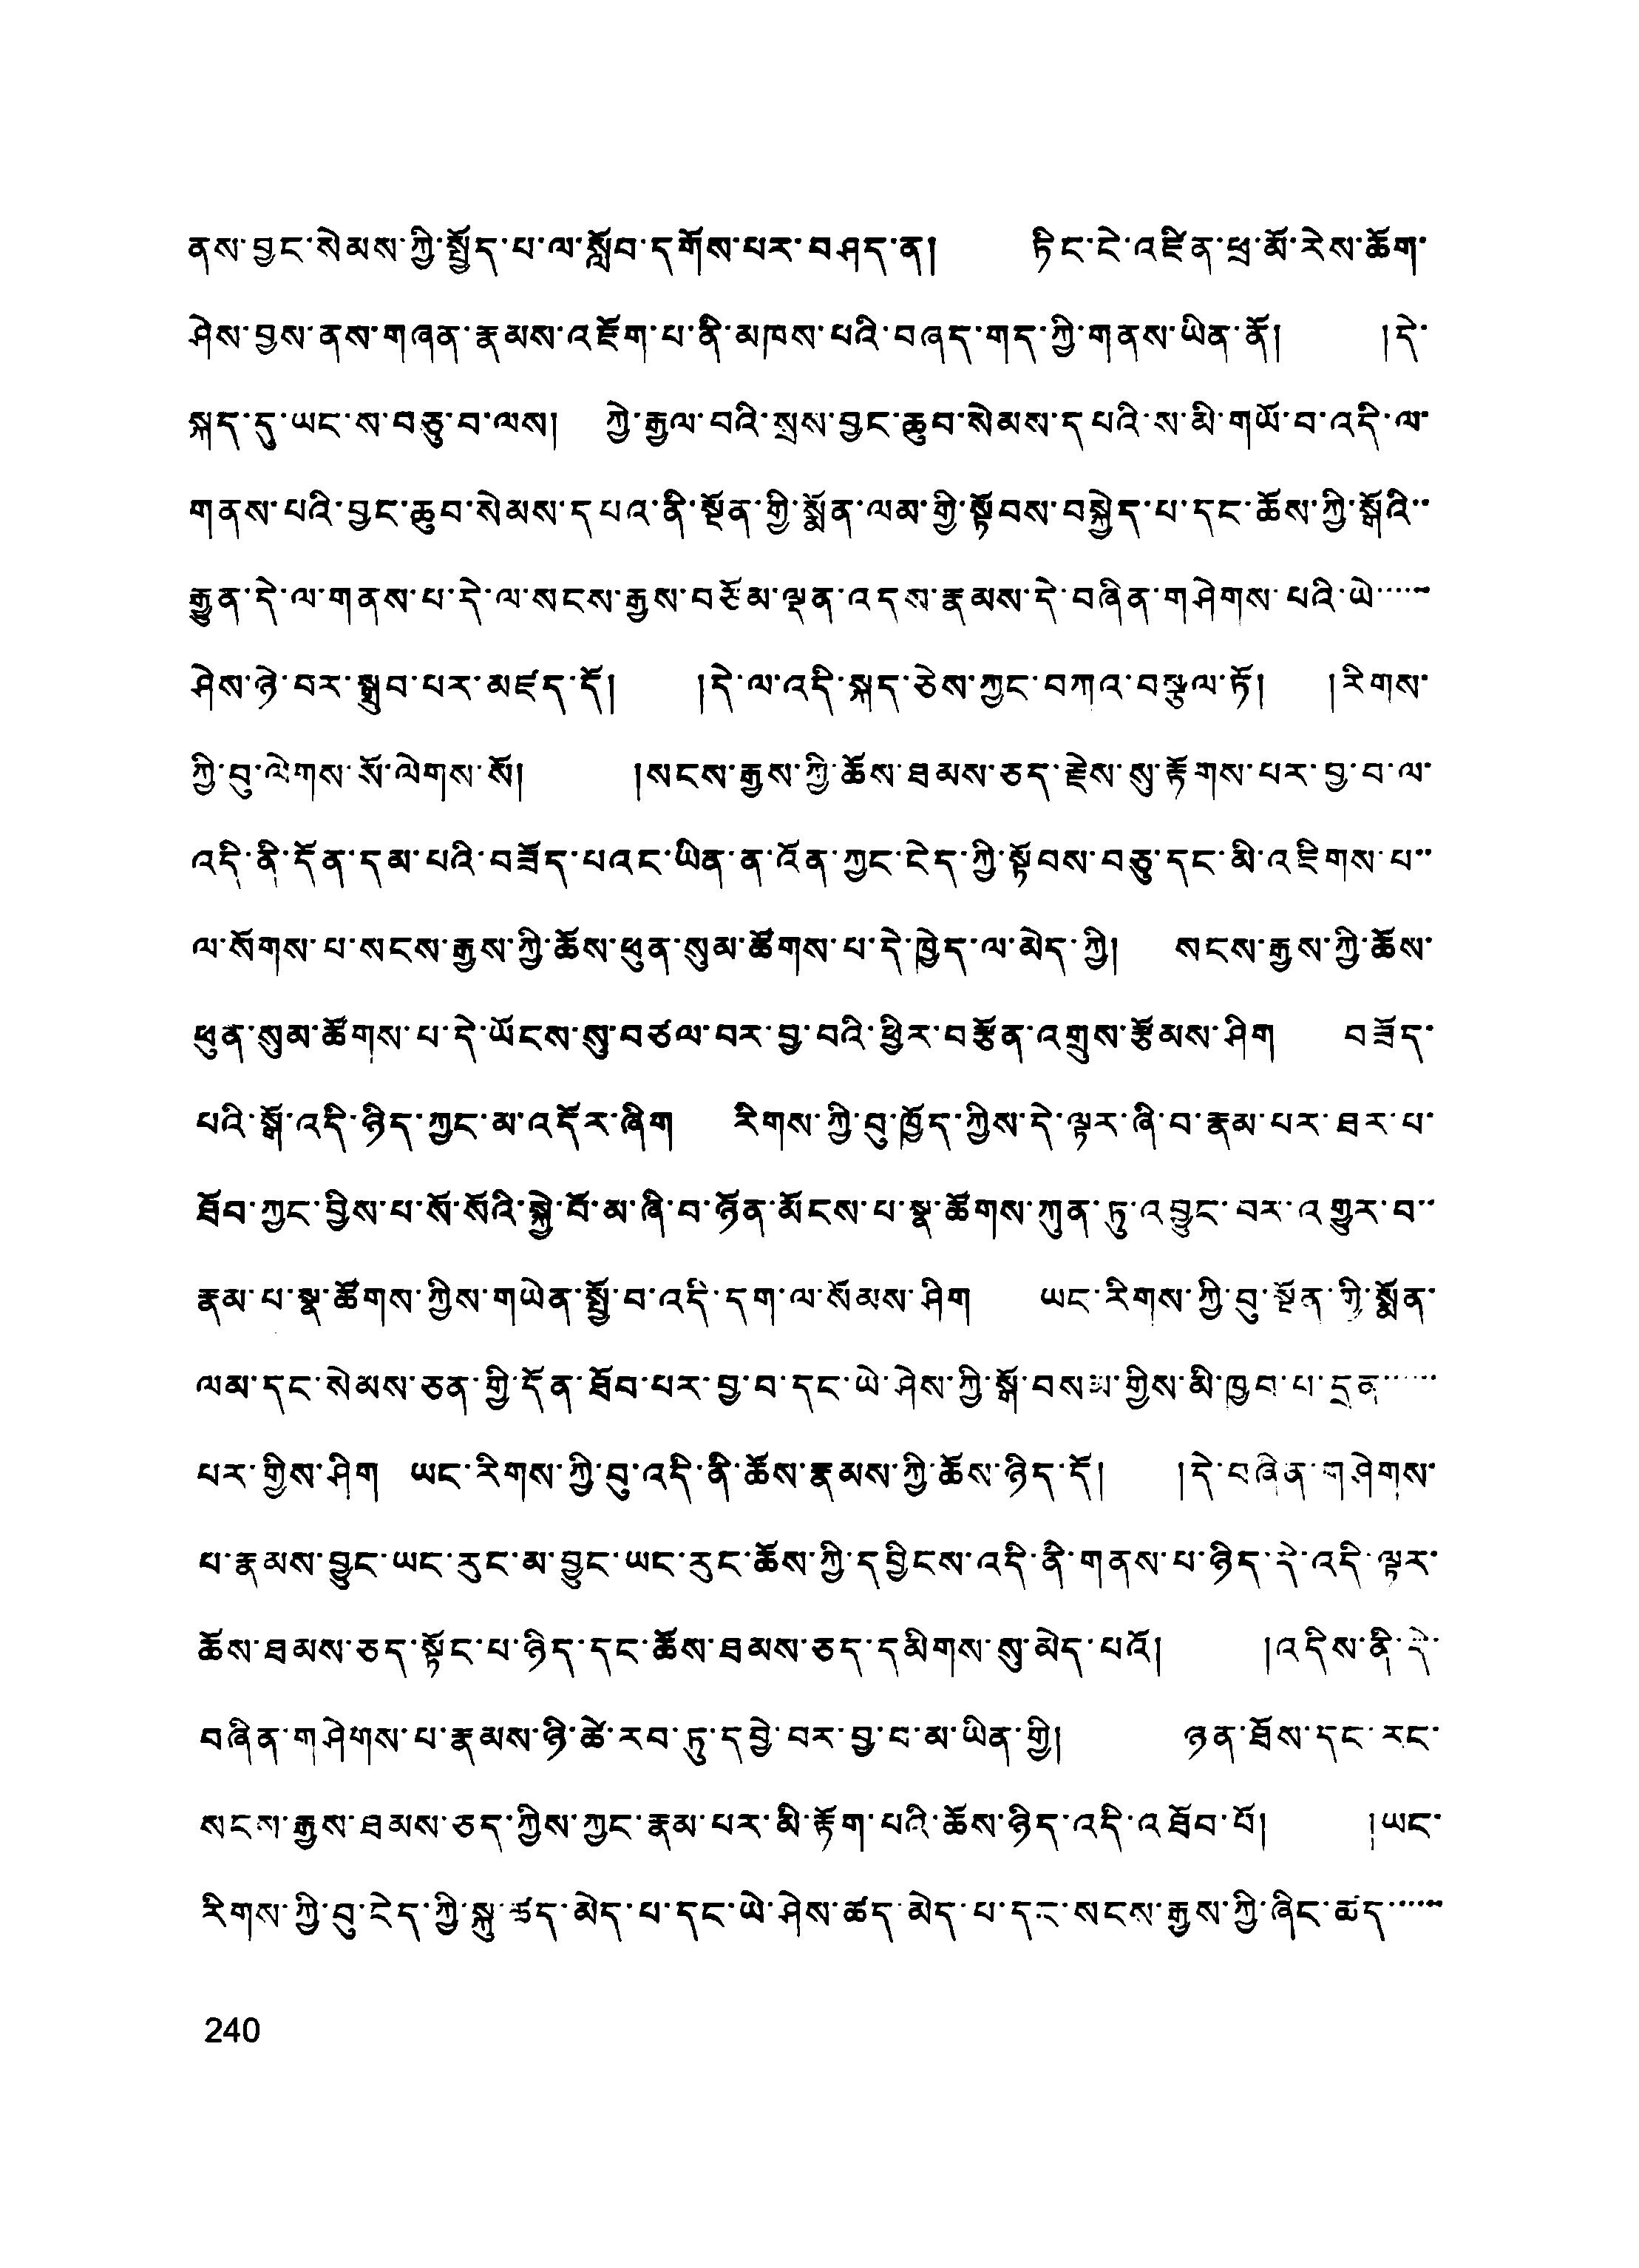 ནས་བྱང་སེམས་ཀྱི་སྤྱོད་པ་ལ་སློབ་དགོས་པར་བཤད་ན། ཏིང་ངེ་འཛིན་ཕྲ་མོ་རེས་ཆོག་
ཤེས་བྱས་ནས་གཞན་རྣམས་འཇོག་པ་ནི་མཁས་པའི་བཞད་གད་ཀྱི་གནས་ཡིན་ནོ། །དེ་
སྐད་དུ་ཡང་ས་བཅུ་བ་ལས། ཀྱེ་རྒྱལ་བའི་སྲས་བྱང་ཆུབ་སེམས་དཔའི་ས་མི་གཡོ་བ་འདི་ལ་
གནས་པའི་བྱང་ཆུབ་སེམས་དཔའ་ནི་སྔོན་གྱི་སྨོན་ལམ་གྱི་སྟོབས་བསྐྱེད་པ་དང་ཆོས་ཀྱི་སྒོའི་་
རྒྱུན་དེ་ལ་གནས་པ་དེ་ལ་སངས་རྒྱས་བཅོམ་ལྡན་འདས་རྣམས་དེ་བཞིན་གཤེགས་པའི་ཡེ་་་་་
ཤེས་ཉེ་བར་སྒྲུབ་པར་མཛད་དོ། །དེ་ལ་འདི་སྐད་ཅེས་ཀྱང་བཀའ་བསྩལ་ཏོ། །རིགས་
ཀྱི་བུ་ལེགས་སོ་ལེགས་སོ། །སངས་རྒྱས་ཀྱི་ཆོས་ཐམས་ཅད་རྗེས་སུ་རྟོགས་པར་བྱ་བ་ལ་
འདི་ནི་དོན་དམ་པའི་བཟོད་པའང་ཡིན་ན་འོན་ཀྱང་ངེད་ཀྱི་སྟོབས་བཅུ་དང་མི་འཇིགས་པ་་
ལ་སོགས་པ་སངས་རྒྱས་ཀྱི་ཆོས་ཕུན་སུམ་ཚོགས་པ་དེ་ཁྱེད་ལ་མེད་ཀྱི། སངས་རྒྱས་ཀྱི་ཆོས་
ཕུན་སུམ་ཚོགས་པ་དེ་ཡོངས་སུ་བཙལ་བར་བྱ་བའི་ཕྱིར་བརྩོན་འགྲུས་རྩོམས་ཤིག བཟོད་
པའི་སྒོ་འདི་ཉིད་ཀྱང་མ་འདོར་ཞིག རིགས་ཀྱི་བུ་ཁྱོད་ཀྱིས་དེ་ལྟར་ཞི་བ་རྣམ་པར་ཐར་པ་
ཐོབ་ཀྱང་བྱིས་པ་སོ་སོའི་སྐྱེ་བོ་མ་ཞི་བ་ཉོན་མོངས་པ་སྣ་ཚོགས་ཀུན་ཏུ་འབྱུང་བར་འགྱུར་བ་་
རྣམ་པ་སྣ་ཚོགས་ཀྱིས་གཡེན་སྤྱོ་བ་འདི་དག་ལ་སོམས་ཤིག ཡང་རིགས་ཀྱི་བུ་སྔོན་གྱི་སྨོན་
ལམ་དང་སེམས་ཅན་གྱི་དོན་ཐོབ་པར་བྱ་བ་དང་ཡེ་ཤེས་ཀྱི་སྒོ་བསམ་གྱིས་མི་ཁྱབ་པ་དྲན་་་་་
པར་གྱིས་ཤིག ཡང་རིགས་ཀྱི་བུ་འདི་ནི་ཆོས་རྣམས་ཀྱི་ཆོས་ཉིད་དོ། །དེ་བཞིན་གཤེགས་
པ་རྣམས་བྱུང་ཡང་རུང་མ་བྱུང་ཡང་རུང་ཆོས་ཀྱི་དབྱིངས་འདི་ནི་གནས་པ་ཉིད་དེ་འདི་ལྟར་
ཆོས་ཐམས་ཅད་སྟོང་པ་ཉིད་དང་ཆོས་ཐམས་ཅད་དམིགས་སུ་མེད་པའོ། །འདིས་ནི་དེ་
བཞིན་གཤེགས་པ་རྣམས་ཉི་ཚེ་རབ་ཏུ་དབྱེ་བར་བྱ་བ་མ་ཡིན་གྱི། ཉན་ཐོས་དང་རང་
སངས་རྒྱས་ཐམས་ཅད་ཀྱིས་ཀྱང་རྣམ་པར་མི་རྟོག་པའི་ཆོས་ཉིད་འདི་འཐོབ་བོ། །ཡང་
རིགས་ཀྱི་བུ་ངེད་ཀྱི་སྐུ་ཚད་མེད་པ་དང་ཡེ་ཤེས་ཚད་མེད་པ་དང་སངས་རྒྱས་ཀྱི་ཞིང་ཚད་་་་་
240